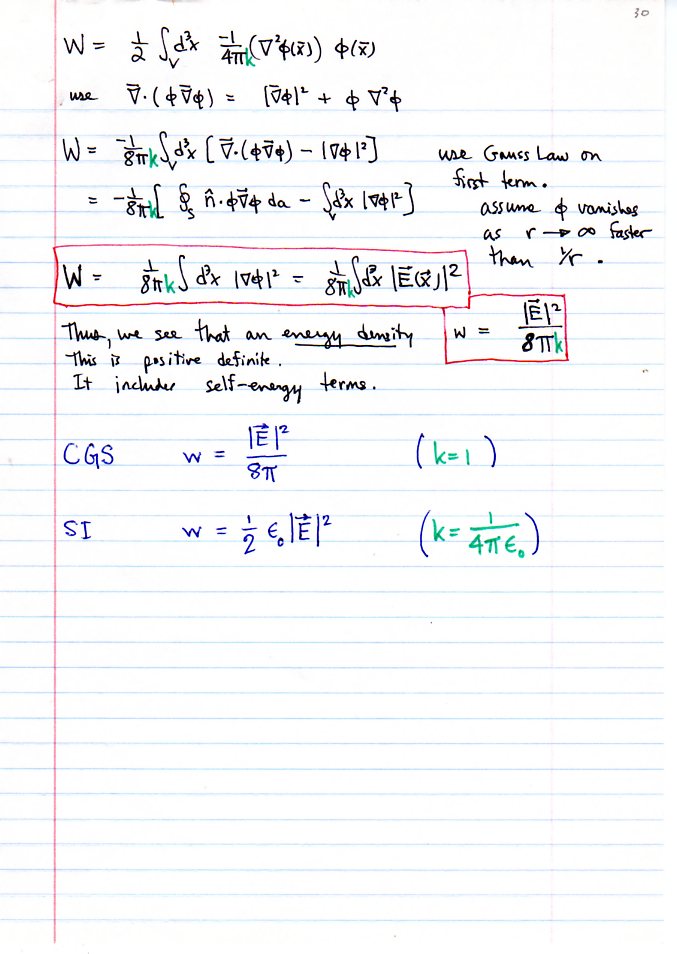 30
W = 1/2 ∫_V d³x -1/4πk (∇²φ(x⃗)) φ(x⃗)
use ∇⃗·(φ∇⃗φ) = |∇⃗φ|² + φ ∇²φ
W = -1/8πk ∫_V d³x [∇⃗·(φ∇⃗φ) − |∇φ|²]
= -1/8πk [ ∮_S n̂·φ∇⃗φ da − ∫_V d³x |∇φ|² ]
use Gauss Law on
first term.
assume φ vanishes
as r → ∞ faster
than 1/r .
W = 1/8πk ∫ d³x |∇φ|² = 1/8πk ∫ d³x |E⃗(x⃗)|²
Thus, we see that an energy density
w = |E⃗|²/8πk
This is positive definite.
It includes self-energy terms.
CGS w = |E⃗|²/8π (k=1)
SI w = 1/2 ε₀ |E⃗|² (k = 1/4πε₀)